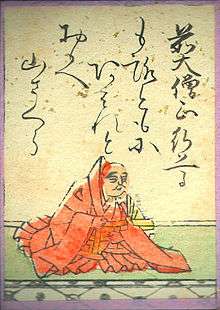 前大僧正行尊
も路ともに
あはれと
おもへ
山さくら